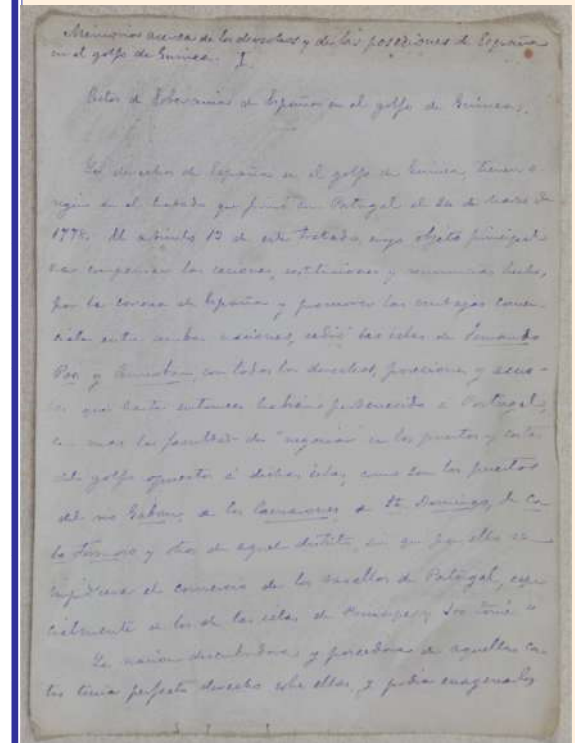 Memorias acerca de los derechos y de las posesiones de España
en el golfo de Guinea. I
de España en el golfo de Guinea.
Los derechos de España en el golfo de Guinea, tienen o
en el tratado que firmó con Portugal el 24 de Marzo de
1778. El artículo 13 de este tratado, cuyo objeto principal
era compensar las cesiones, restituciones y renuncias hechas,
por la corona de España y promover las ventajas comer
ciales entre ambas naciones, cedió las islas de Fernando
Poo y Annobon, con todos los derechos, posesiones y accio-
nes que hasta entonces habian pertenecido a Portugal,
con mas la facultad de "negociar" en los puertos y costas
del golfo opuestos á dichas islas, como son los puertos
del rio Gabon, de los Camarones, de Sto Domingo, de Ca
bo Formoso y otros de aquel distrito, sin que por ello se
el comercio de los vasallos de Portugal, espe
cialmente de los de las islas de Principe y Sto Tomé
La nación descubridora y poseedora de aquellas cos
tas tenia perfecto derecho sobre ellas, y podia enagenarlas